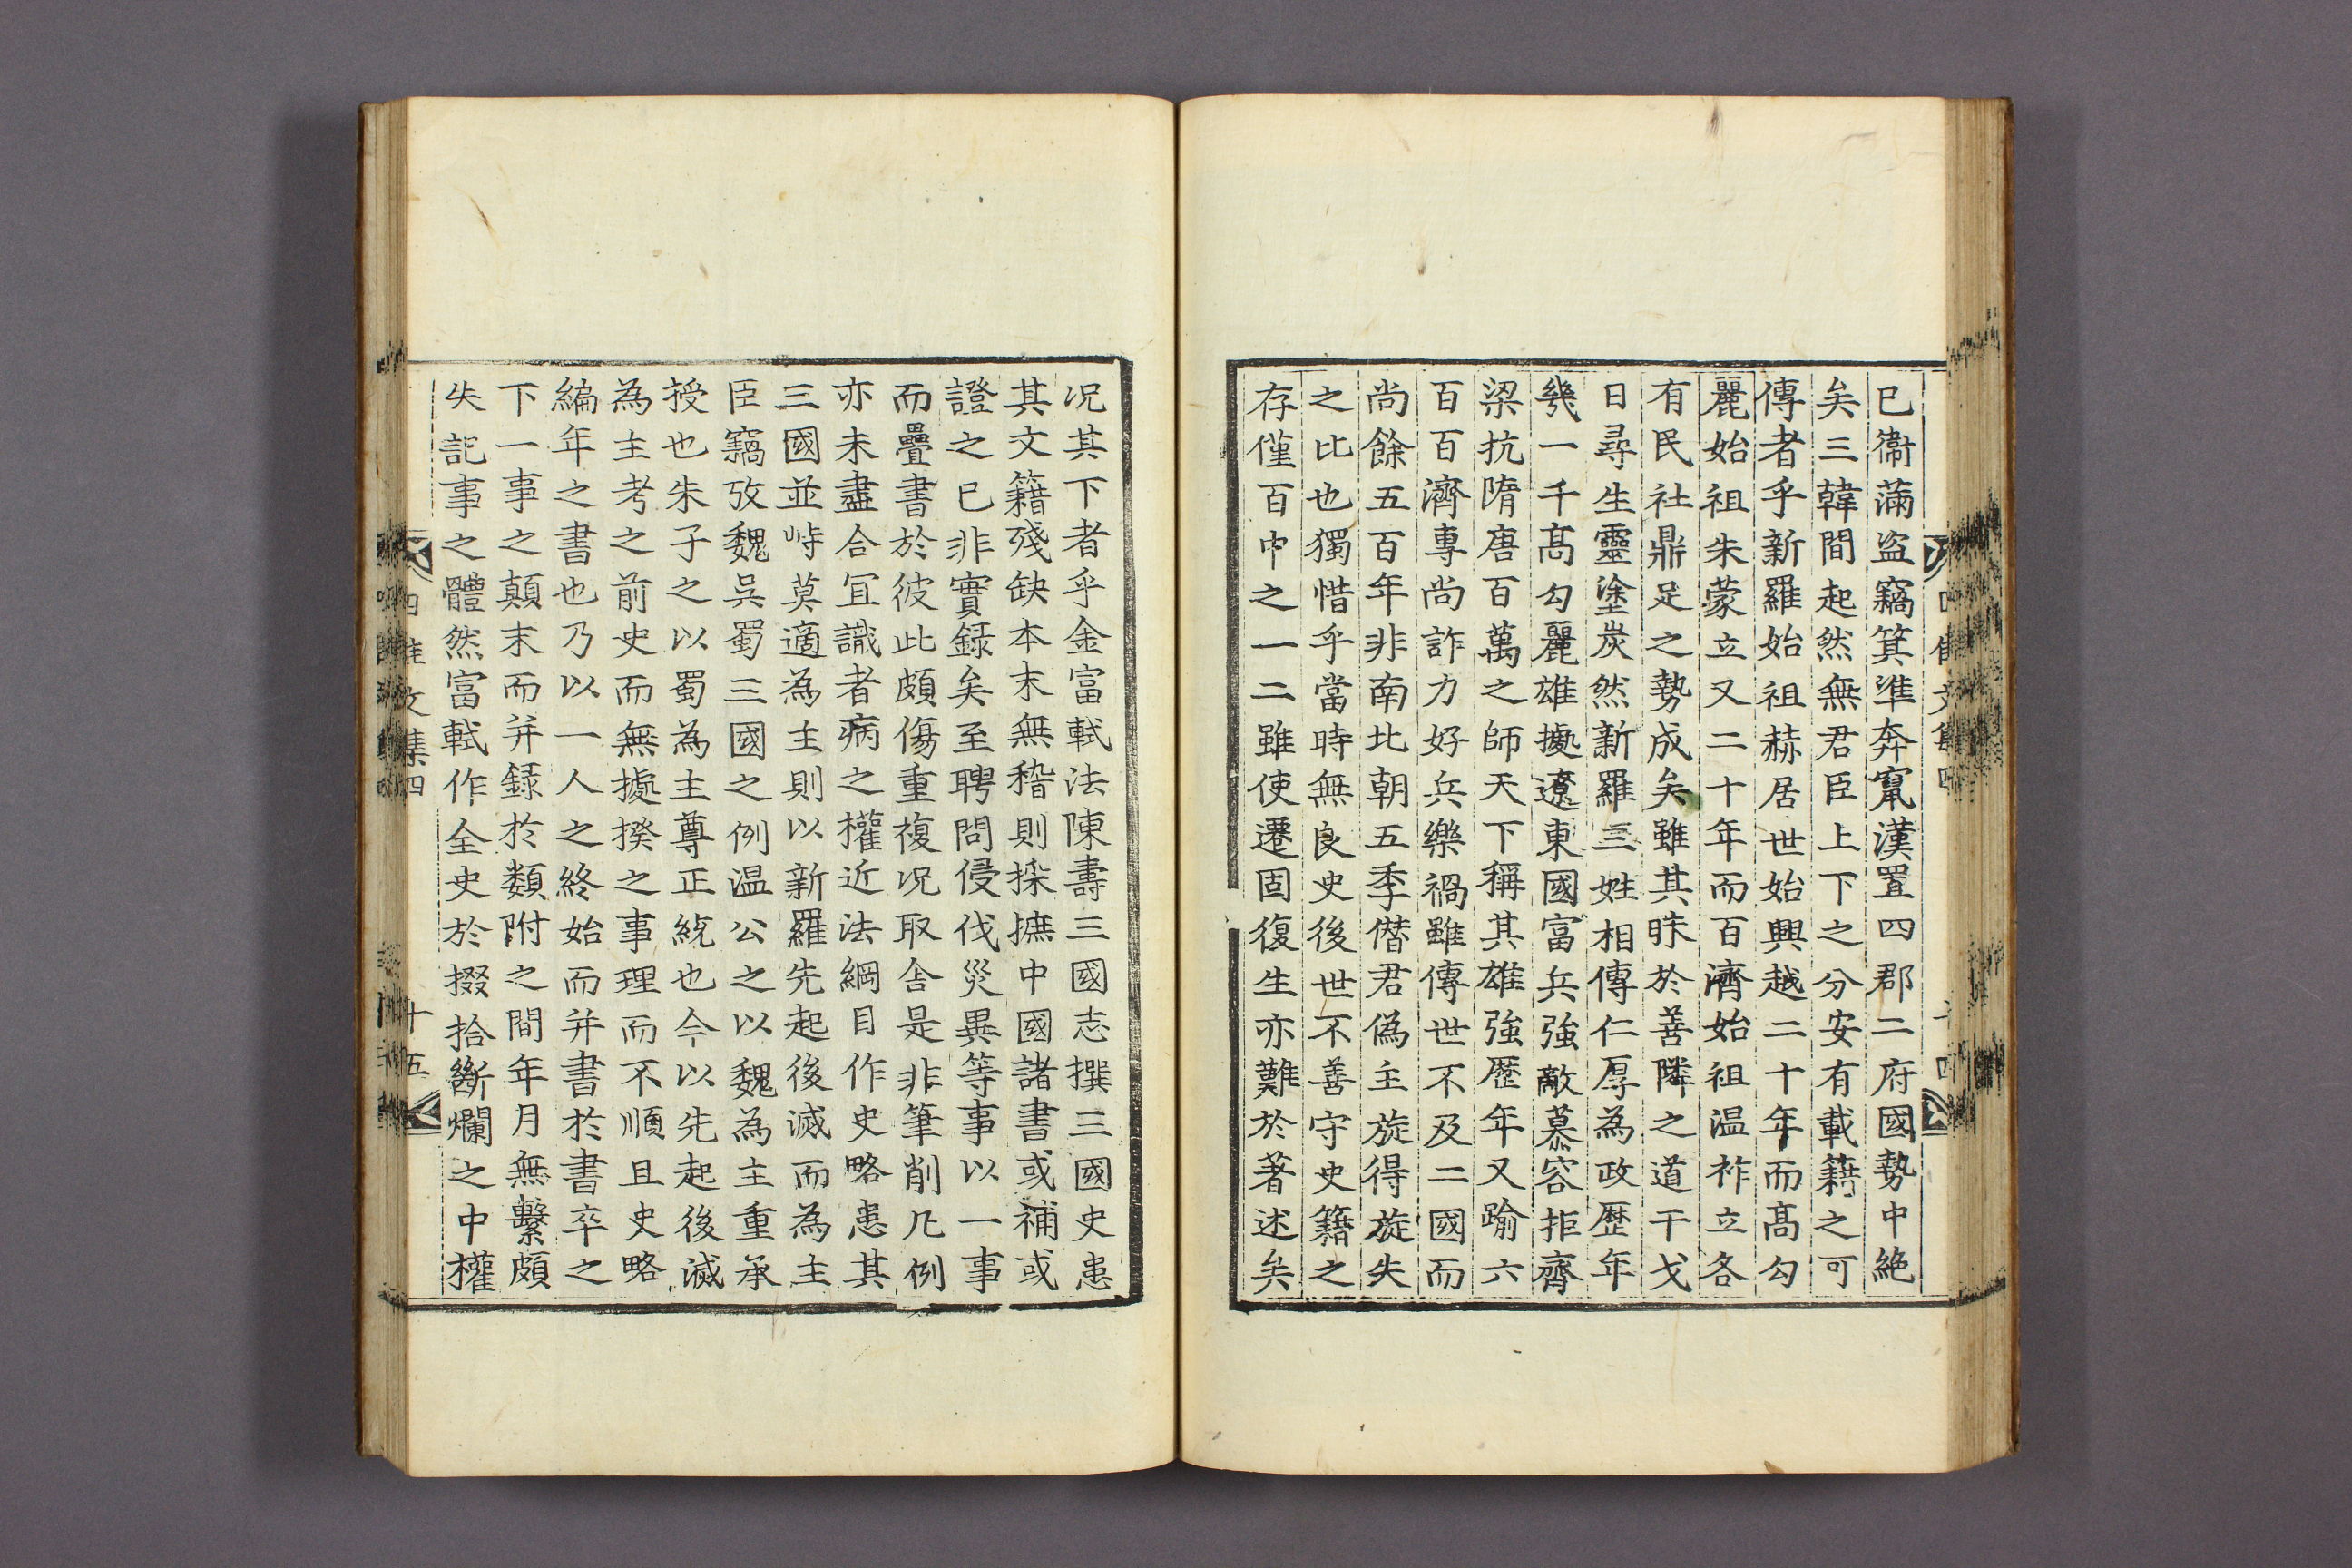 已衞滿盗竊箕準奔竄漢置四郡二府國勢中絶
矣三韓間起然無君臣上下之分安有載籍之可
傳者乎新羅始祖赫居世始興越二十年而髙勾
麗始祖朱蒙立又二十年而百濟始祖温祚立各
有民社鼎足之勢成矣雖其昧於善隣之道干戈
日尋生靈塗炭然新羅三姓相傳仁厚為政歴年
幾一千髙勾麗雄據遼東國富兵強敵慕容拒齊
梁抗隋唐百萬之師天下稱其雄強歴年又踰六
百百濟專尚詐力好兵樂禍雖傳世不及二國而
尚餘五百年非南北朝五季僭君偽主旋得旋失
之比也獨惜乎當時無良史後世不善守史籍之
存僅百中之一二雖使遷固復生亦難於著述矣
况其下者乎金富軾法陳壽三國志撰三國史患
其文籍殘缺本末無稽則採摭中國諸書或補或
證之已非實録矣至聘問侵伐災異等事以一事
而疊書於彼此頗傷重複况取舎是非筆削凡例
亦未盡合冝識者病之權近法綱目作史略患其
三國並峙莫適為主則以新羅先起後滅而為主
臣竊攷魏吳蜀三國之例温公之以魏為主重承
授也朱子之以蜀為主尊正統也今以先起後滅
為主考之前史而無據揆之事理而不順且史略
編年之書也乃以一人之終始而并書於書卒之
下一事之顛末而并録於類附之間年月無繫頗
失記事之體然富軾作全史於掇拾斷爛之中權
四佳文集四
十五